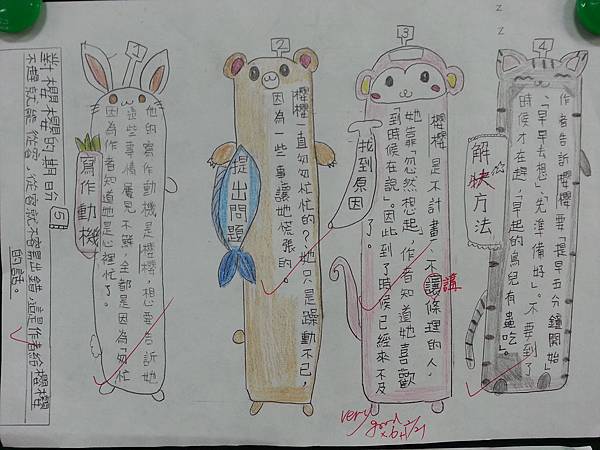 1
寫作動機
他的寫作動機是櫻櫻,想要告訴她
這些事情屢見不鮮,全都是因為「匆忙
因為作者知道她是心裡忙了。
2
提出問題
櫻櫻一直匆匆忙忙的?她只是躁動不已,
因為一些事讓她慌張的。
3
找到原因
櫻櫻是不計畫,不讓條理的人,
講
她靠「忽然想起」,作者知道她喜歡
「到時候在說」。因此到了時候已經來不及
了。
4
z
z
解決方法
作者告訴櫻櫻要「提早五分鐘開始」
「早早去想」,先準備好」。不要到了
時候才在趕,「早起的鳥兒有蟲吃」。
5
對櫻櫻的期盼
不趕就能從容,從容就不容易出錯,這是作者給櫻櫻
的話。
very
good